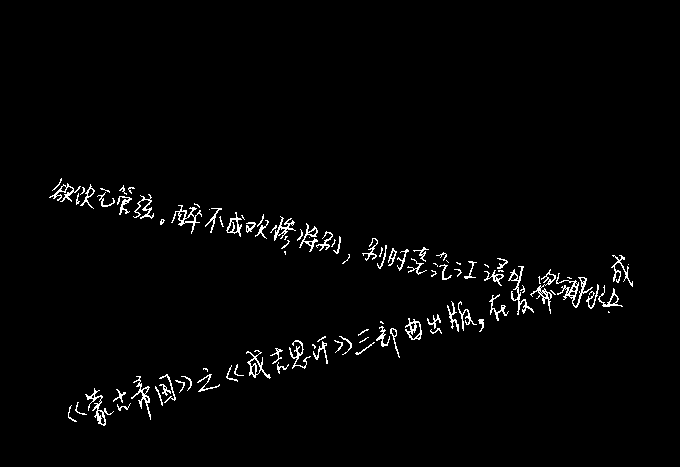 欲饮无管弦。醉不成欢惨将别，别时茫茫江浸月
《蒙古帝国》之《成吉思汗》三部曲出版，在发